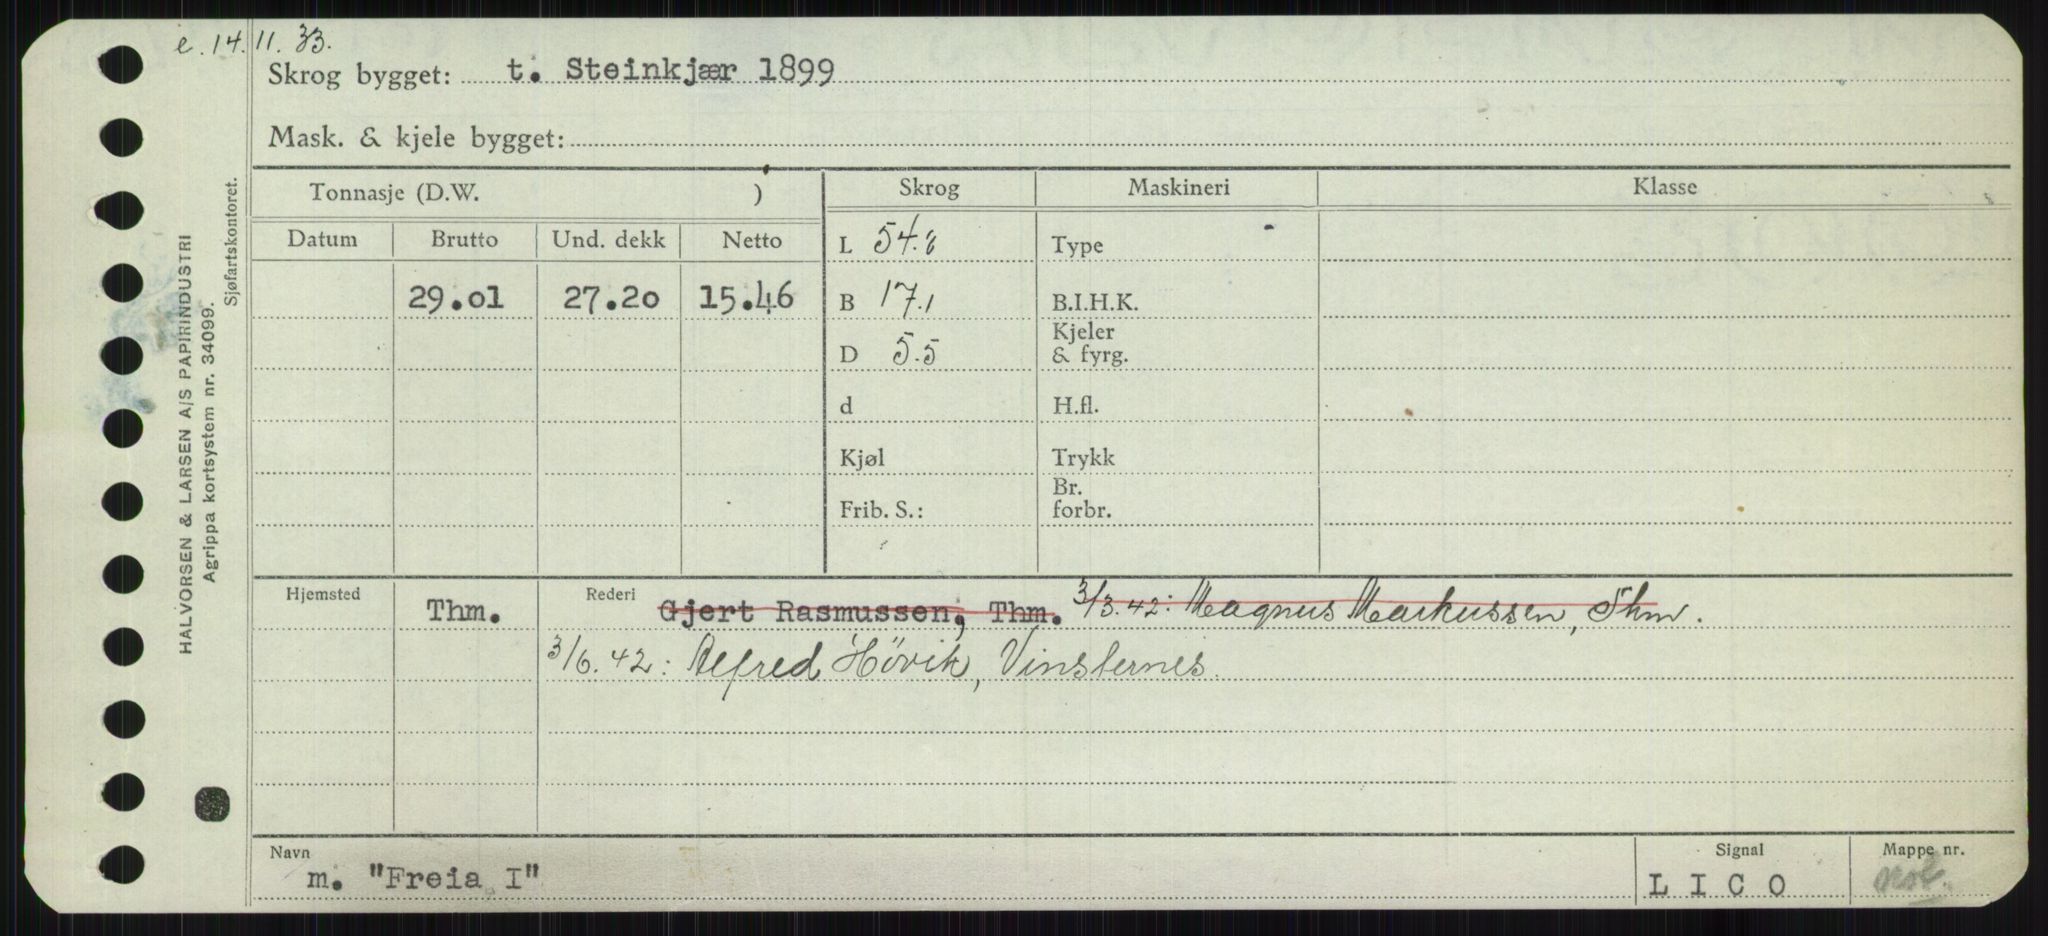 e. 14.11.33.
Skrog bygget: t. Steinkjær 1899
Mask. & kjele bygget:
Tonnasje (D.W. ) Skrog Maskineri Klasse
Datum Brutto Und. dekk Netto L 54.8 Type
29.01 27.20 15.46 B 17.1 B.I.H.K.
D 5.5 Kjeler & fyrg.
d H.fl.
Kjøl Trykk
Frib. S.: Br. forbr.
Hjemsted Thm. Rederi Gjert Rasmussen, Thm. 3/3.42: Magnus Markussen, Thm.
3/6.42: Alfred Høvik, Vinsternes.
Navn Signal Mappe nr.
m. "Freia I" L I C O
HALVORSEN & LARSEN A/S PAPIRINDUSTRI
Agrippa kortsystem nr. 34099.
Sjøfartskontoret.